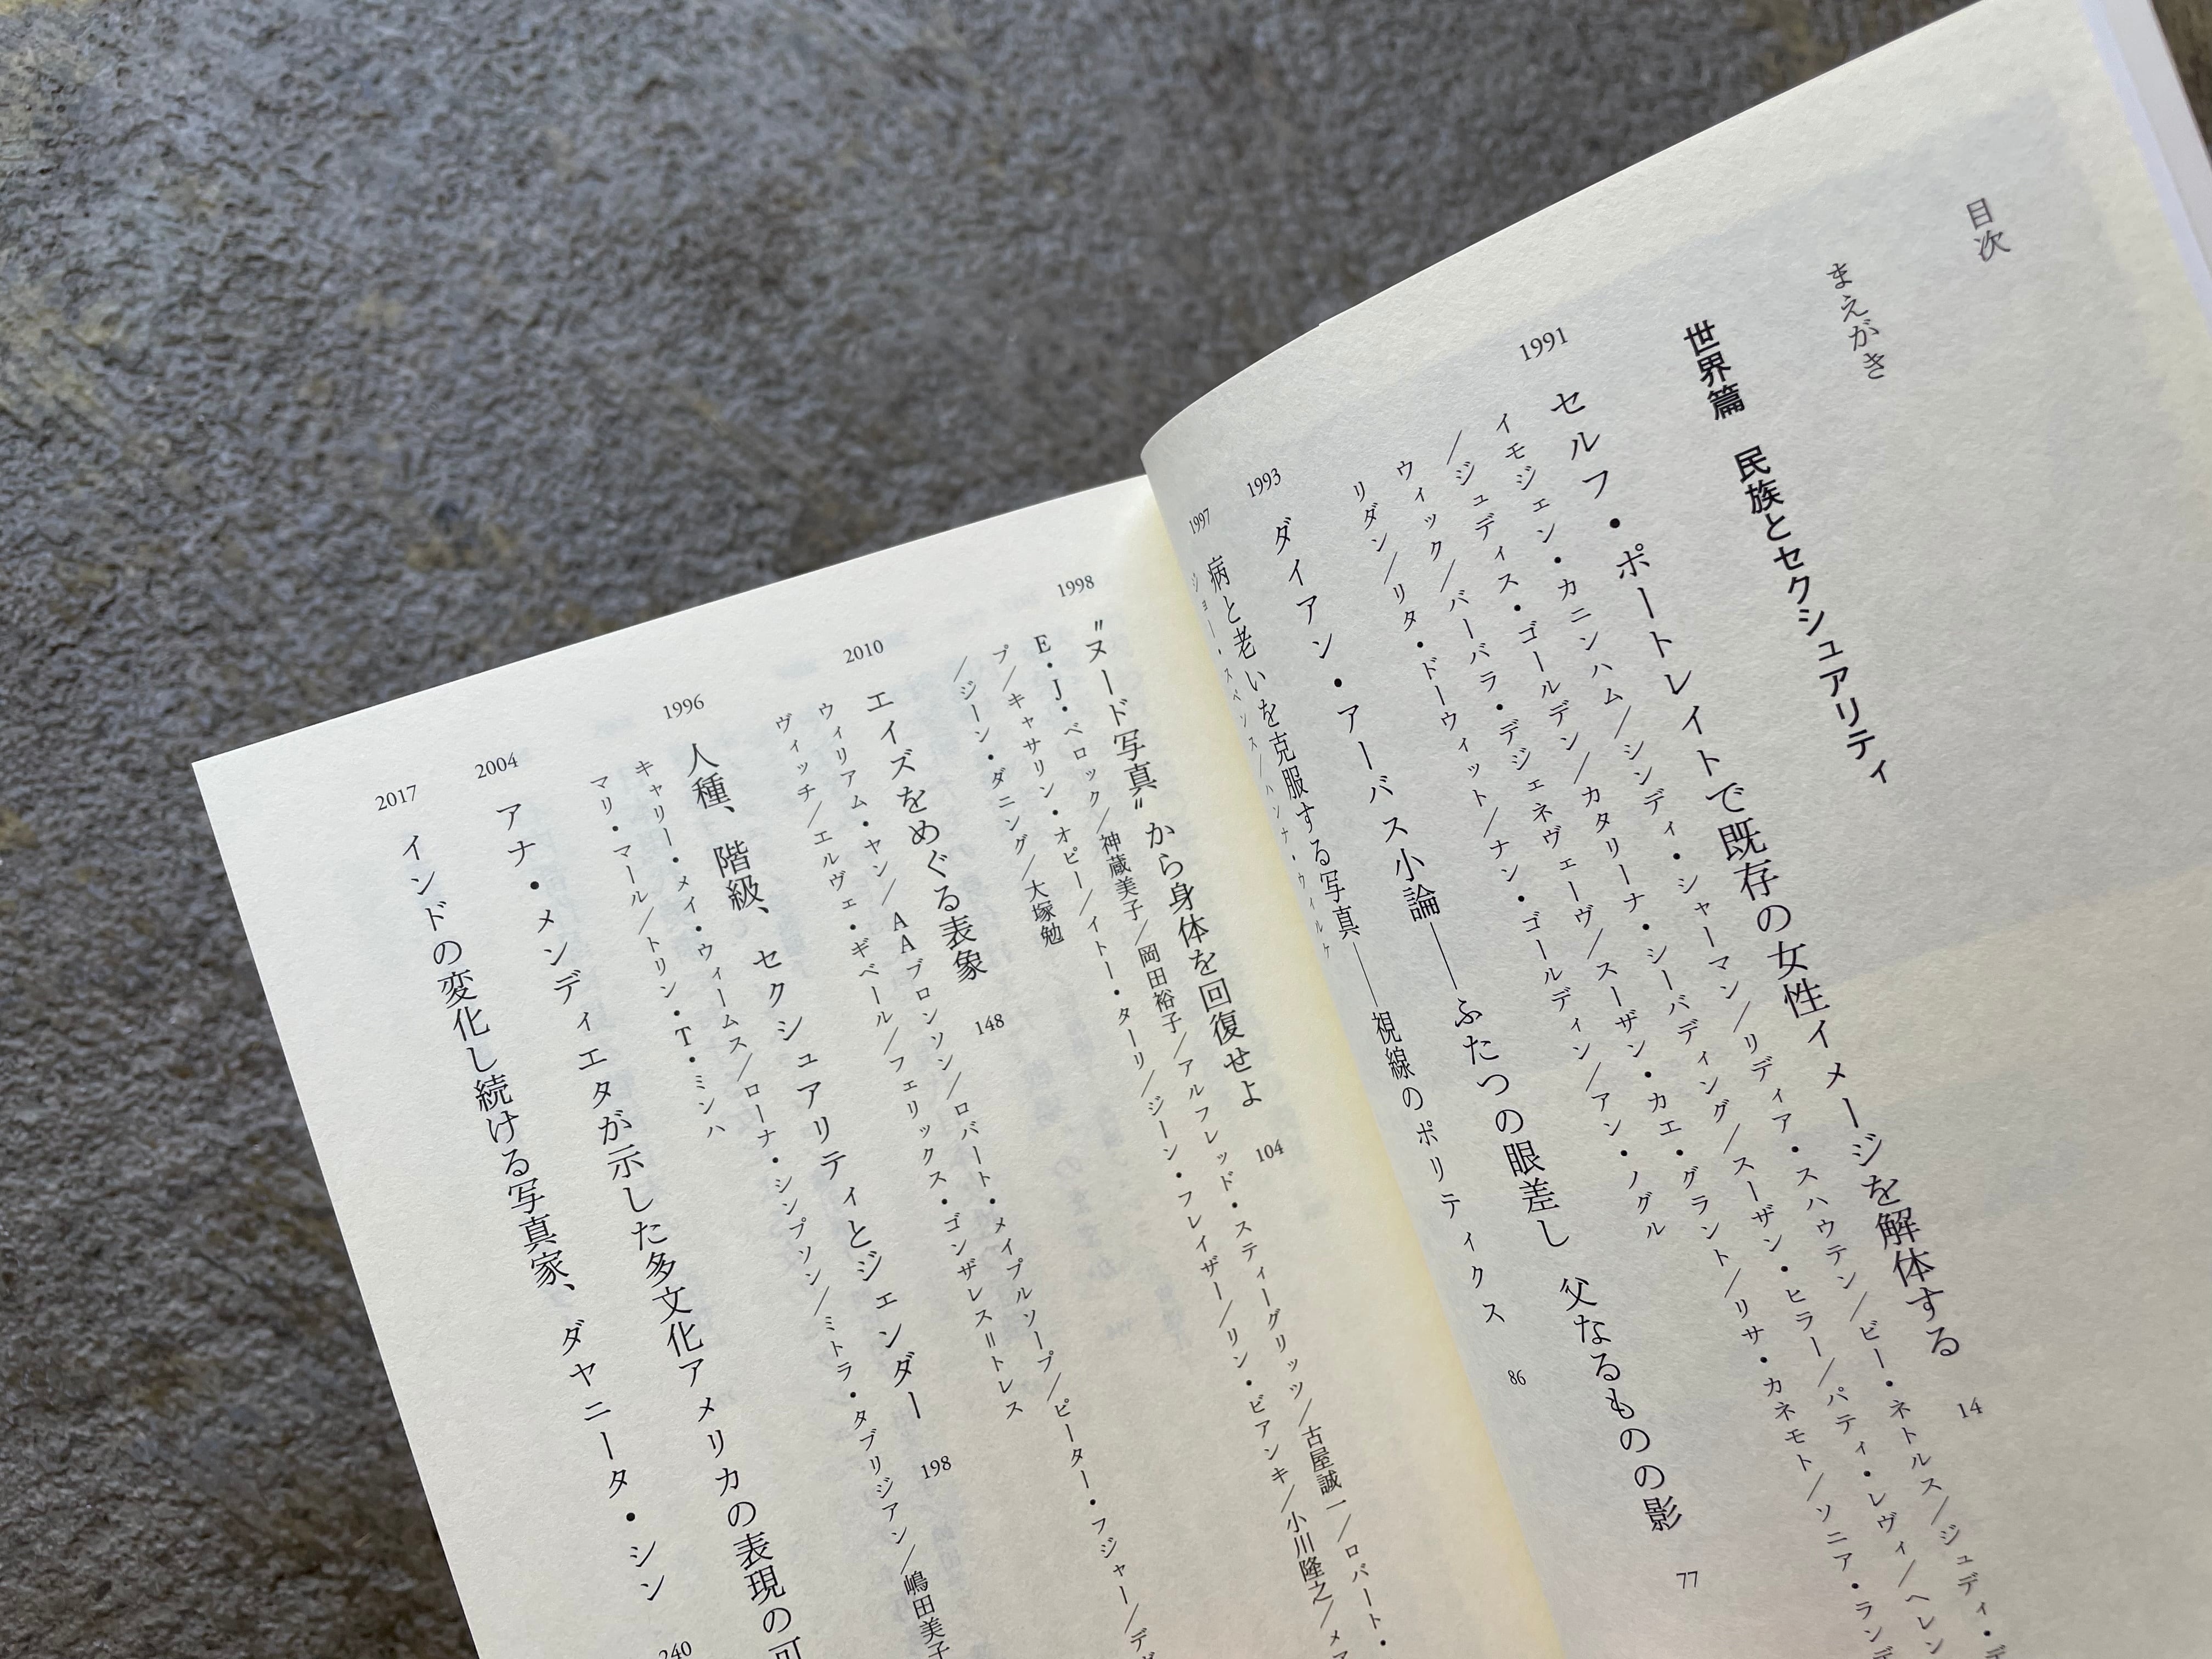 目次
まえがき
世界篇 民族とセクシュアリティ
1991 セルフ・ポートレイトで既存の女性イメージを解体する 14
イモジェン・カニンハム/シンディ・シャーマン/リディア・スハウテン/ビー・ネトルス/ジュディ・デ
/ジュディス・ゴールデン/カタリーナ・シーバディング/スーザン・ヒラー/パティ・レヴィ/ヘレン
ウィック/バーバラ・デジェネヴェーヴ/スーザン・カエ・グラント/リサ・カネモト/ソニア・ランデ
リダン/リタ・ドーウィット/ナン・ゴールディン/アン・ノグル
1993 ダイアン・アーバス小論――ふたつの眼差し 父なるものの影 77
1997 病と老いを克服する写真――視線のポリティクス 86
ジョー・スペンス/ハンナ・ウィルケ
1998 〝ヌード写真〟から身体を回復せよ 104
E・J・ベロック/神蔵美子/岡田裕子/アルフレッド・スティーグリッツ/古屋誠一/ロバート・
プ/キャサリン・オピー/イトー・ターリ/ジーン・フレイザー/リン・ビアンキ/小川隆之/メア
/ジーン・ダニング/大塚勉
2010 エイズをめぐる表象 148
ウィリアム・ヤン/AAブロンソン/ロバート・メイプルソープ/ピーター・フジャー/デザ
ヴィッチ/エルヴェ・ギベール/フェリックス・ゴンザレス=トレス
1996 人種、階級、セクシュアリティとジェンダー 198
キャリー・メイ・ウィームス/ローナ・シンプソン/ミトラ・タブリジアン/嶋田美子
マリ・マール/トリン・T・ミンハ
2004 アナ・メンディエタが示した多文化アメリカの表現の可
2017 インドの変化し続ける写真家、ダヤニータ・シン 240